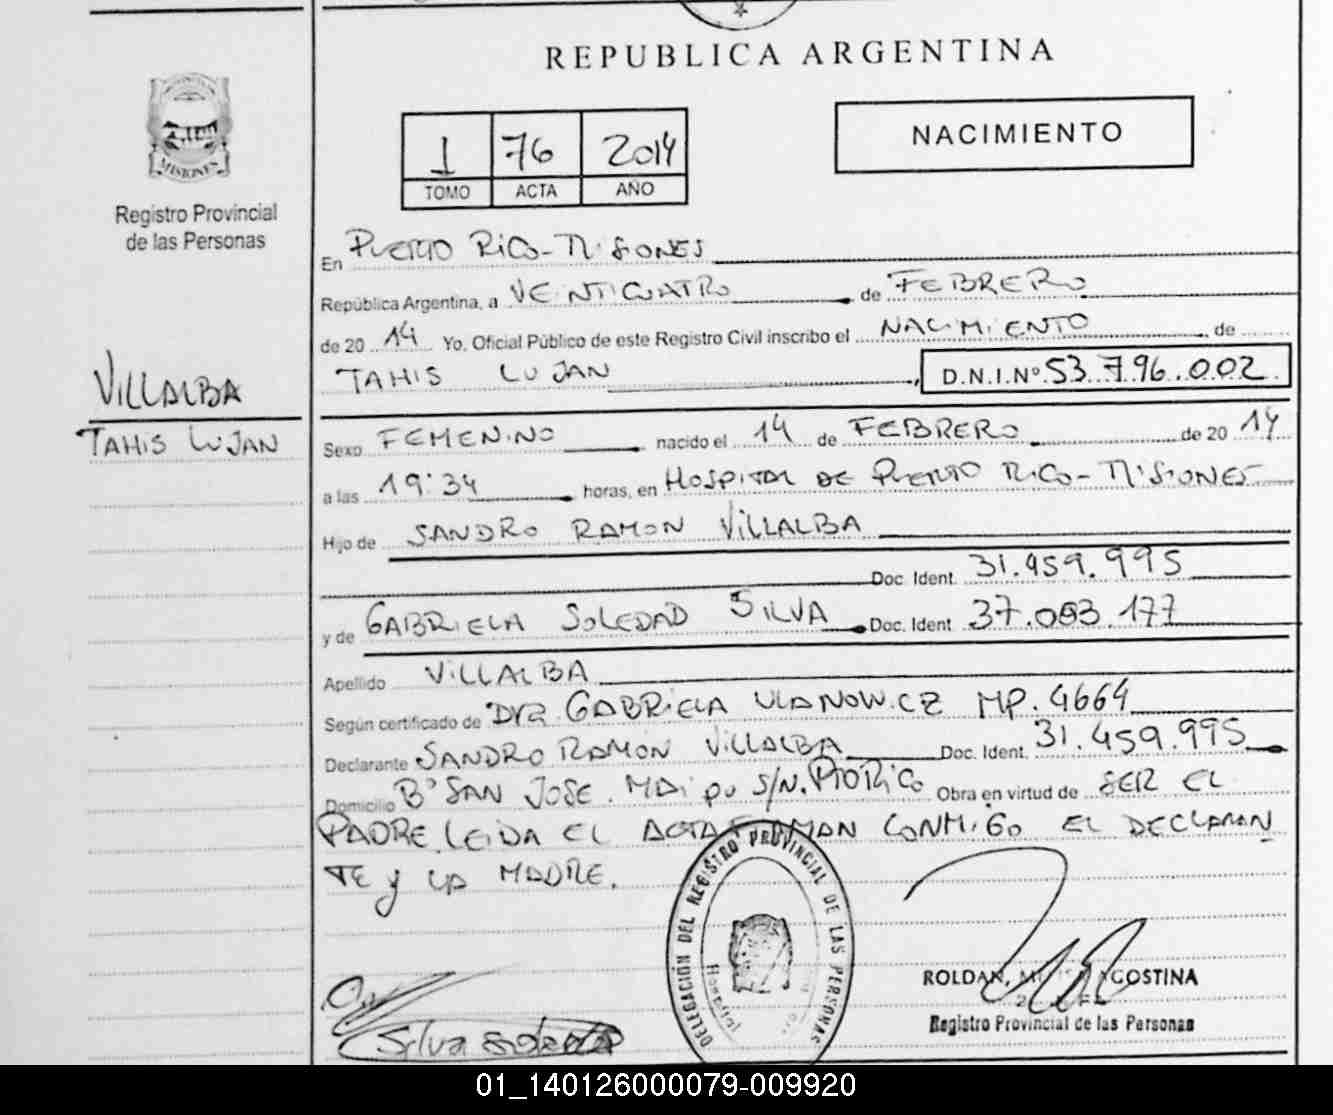 REPUBLICA ARGENTINA
MISIONES
Registro Provincial
de las Personas
1 76 2014
TOMO ACTA AÑO
NACIMIENTO
En PUERTO RICO - MISIONES
República Argentina, a VEINTICUATRO de FEBRERO
de 2014 Yo, Oficial Público de este Registro Civil inscribo el NACIMIENTO de
TAHIS LUJAN, D.N.I.Nº. 53.796.002
VILLALBA
TAHIS LUJAN
Sexo FEMENINO nacido el 14 de FEBRERO de 2014
a las 19:34 horas, en HOSPITAL DE PUERTO RICO - MISIONES
Hijo de SANDRO RAMON VILLALBA
Doc. Ident. 31.459.995
y de GABRIELA SOLEDAD SILVA Doc. Ident. 37.083.177
Apellido VILLALBA
Según certificado de Dra GABRIELA ULANOWICZ MP. 4664
Declarante SANDRO RAMON VILLALBA Doc. Ident. 31.459.995
Domicilio Bº SAN JOSE. MAIPU S/N. PTO RICO Obra en virtud de SER EL
PADRE. LEIDA EL ACTA FIRMAN CONMIGO EL DECLARAN
TE y LA MADRE.
DELEGACIÓN DEL REGISTRO PROVINCIAL DE LAS PERSONAS
Hospital
Silva
ROLDAN, AGOSTINA
Registro Provincial de las Personas
01_140126000079-009920